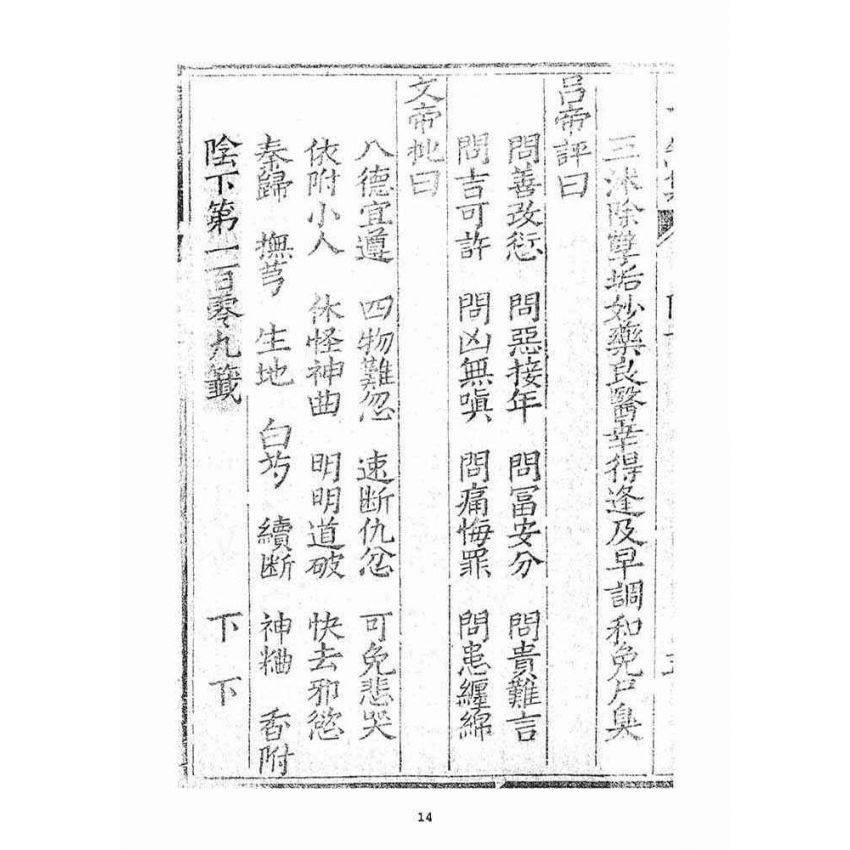 三沐除孽垢妙藥良醫幸得逢及早調和免尸臭
呂帝評曰
問善改愆 問惡接年 問冨安分 問貴難言
問吉可許 問凶無嗔 問痛悔罪 問患纏綿
文帝批曰
八德宜遵 四物難忽 速断仇忿 可免悲哭
依附小人 休怪神曲 明明道破 快去邪慾
秦歸 撫芎 生地 白芍 續断 神粬 香附
陰下第一百零九籤 下下
14